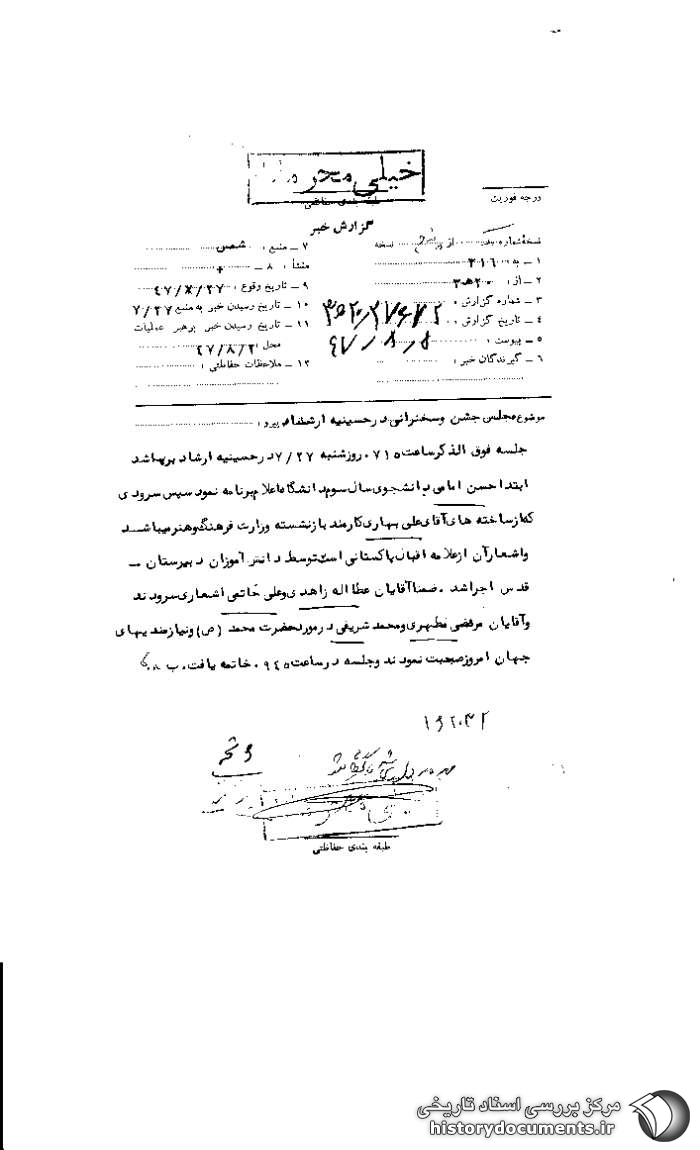 خیلی محرمانه
طبقه بندی حفاظتی
درجه فوریت
گزارش خبر
نسخه شماره یک از پنج نسخه
۱ ـ به : ۳۱۶
۲ ـ از : ۲۰ هـ ۳
۳ ـ شماره گزارش :
۴ ـ تاریخ گزارش : ۴۷/۸/۵
۵ ـ پیوست :
۶ ـ گیرندگان خبر :
۷ ـ منبع : شمس
۸ ـ منشأ :
۹ ـ تاریخ وقوع : ۴۷/۷/۲۷
۱۰ ـ تاریخ رسیدن خبر به منبع ۷/۲۷
۱۱ ـ تاریخ رسیدن خبر برهبر عملیات
محل : ۴۷/۸/۲
۱۲ ـ ملاحظات حفاظتی :
موضوع مجلس جشن وسخنرانی در حسینیه ارشاد پیرو :
جلسه فوق الذکر ساعت ۰۷۱۵ روز شنبه ۷/۲۷ در حسینیه ارشاد برپا شد
ابتدا حسن امامی دانشجوی سال سوم دانشگاه اعلام برنامه نمود سپس سرودی
که از ساخته های آقای علی بهاری کارمند بازنشسته وزارت فرهنگ وهنر میباشد
واشعار آن از علامه اقبال پاکستانی است توسط دانش آموزان دبیرستان ـ
قدس اجرا شد . ضمنا آقایان عطا اله زاهدی وعلی خاتمی اشعاری سرودند
وآقایان مرتضی مطهری ومحمد شریعتی درمورد حضرت محمد (ص) ونیازمندیهای
جهان امروز صحبت نمودند وجلسه در ساعت ۰۹۴۵ خاتمه یافت. ب
طبقه بندی حفاظتی
مرکز بررسی اسناد تاریخی
historydocuments.ir